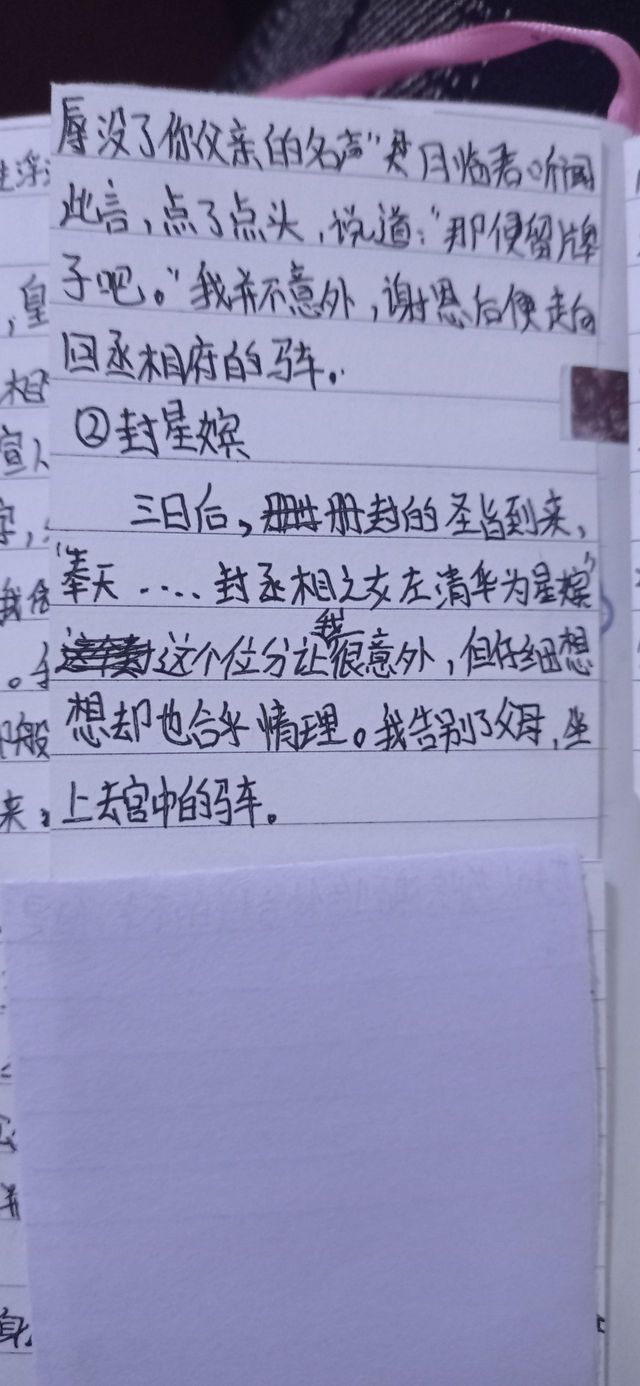 辱没了你父亲的名声"月临听闻
此言，点了点头，说道："那便留牌
子吧。"我并不意外，谢恩后便走向
回丞相府的马车。
②封星嫔
三日后，册封的圣旨到来，
"奉天....封丞相之女左清华为星嫔"
这个位分让我很意外，但仔细想
想却也合乎情理。我告别了父母，坐
上去宫中的马车。